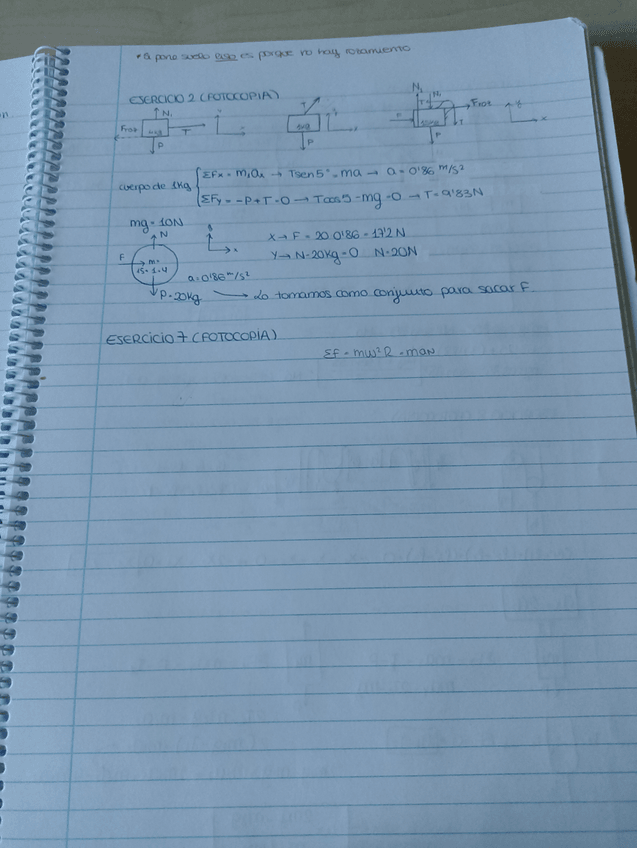 • Si pone suelo liso es porque no hay rozamiento
EJERCICIO 2 (FOTOCOPIA)
N₁ T N₁ N₂
Froz 4kg T 1kg T Froz
P P F P T
cuerpo de 1kg { ΣFx = m₁a₁ → Tsen5° = ma → a = 0'86 m/s²
ΣFy = -P + T = 0 → Tcos5 - mg = 0 → T = 9'83N
mg = 10N
N
F m= 15+1+4
P = 20kg
a = 0'86 m/s²
X → F = 20·0'86 = 17'2 N
Y → N - 20kg = 0 N = 20N
→ Lo tomamos como conjunto para sacar F.
EJERCICIO 7 (FOTOCOPIA)
ΣF = mω²R = maN